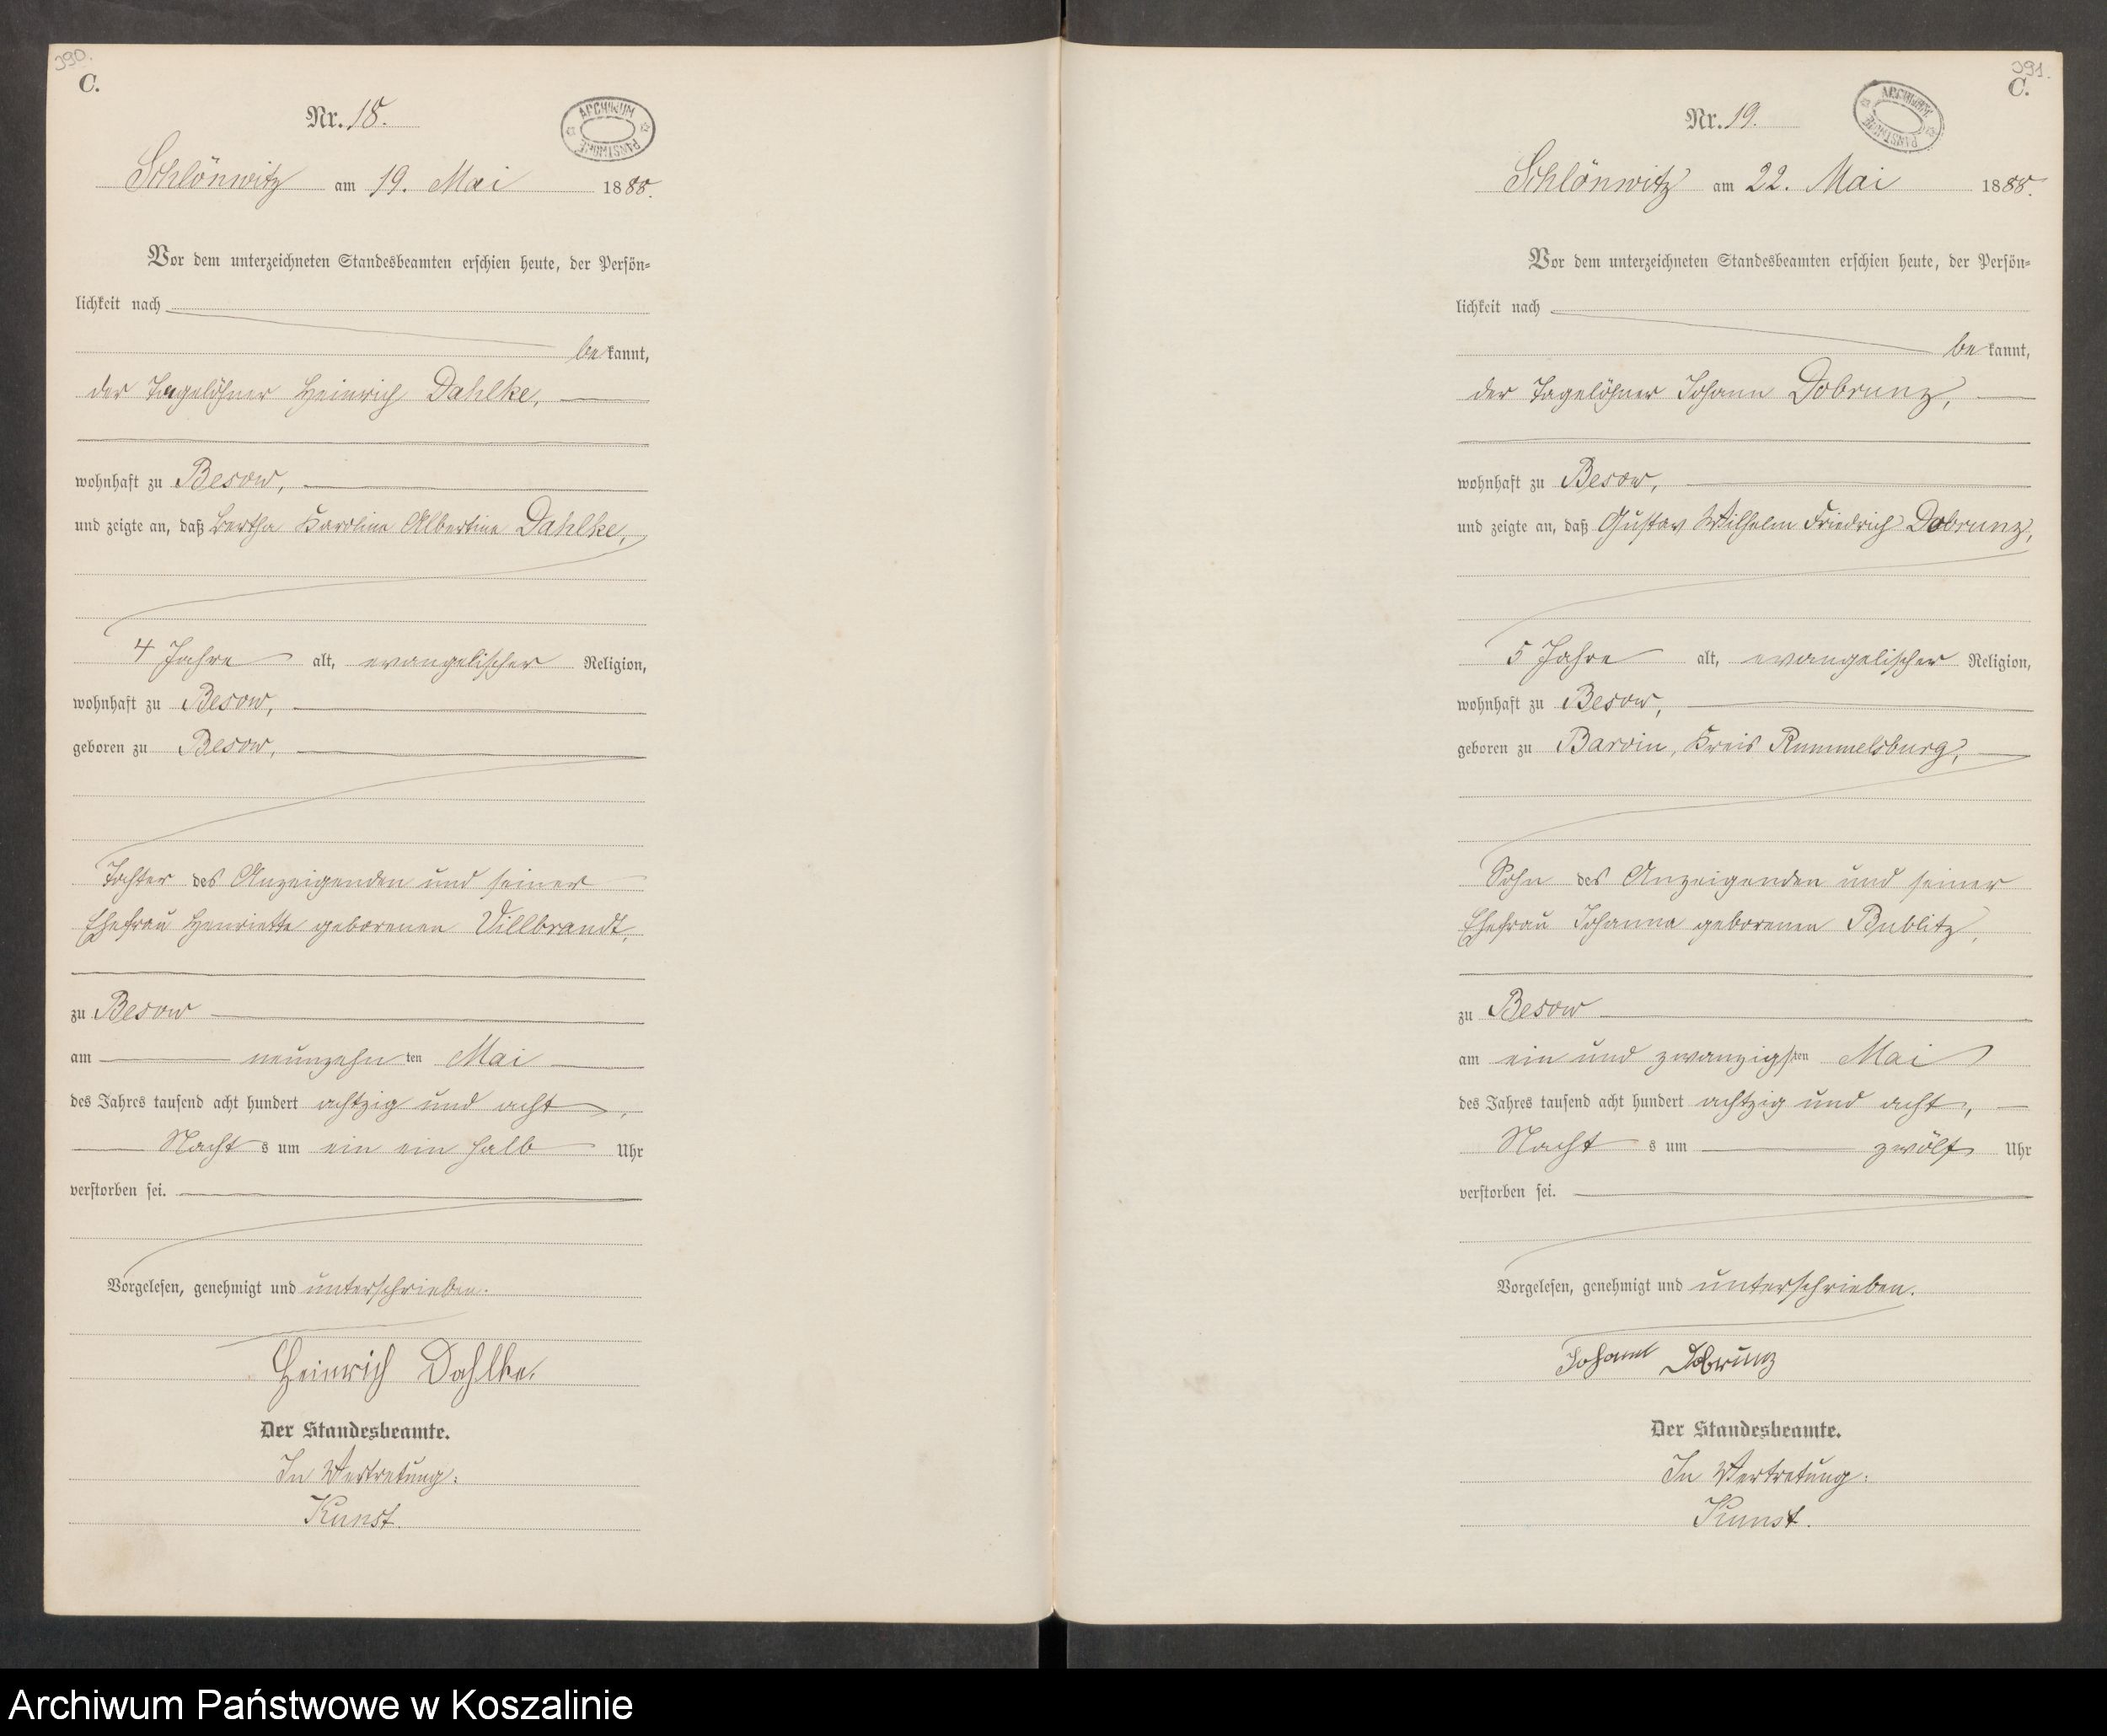 390.
C.
Nr. 18.
ARCHIWUM PAŃSTWOWE
Schlönwitz am 19. Mai 1888.
Vor dem unterzeichneten Standesbeamten erschien heute, der Persön-
lichkeit nach
bekannt,
der Tagelöhner Heinrich Dahlke,
wohnhaft zu Besow,
und zeigte an, daß Bertha Karoline Albertine Dahlke,
4 Jahre alt, evangelischer Religion,
wohnhaft zu Besow,
geboren zu Besow,
Tochter des Anzeigenden und seiner
Ehefrau Henriette geborenen Villbrandt,
zu Besow
am neunzehnten Mai
des Jahres tausend acht hundert achtzig und acht,
Nachts um ein ein halb Uhr
verstorben sei.
Vorgelesen, genehmigt und unterschrieben.
Heinrich Dahlke.
Der Standesbeamte.
In Vertretung:
Kunst.
391.
C.
Nr. 19.
ARCHIWUM PAŃSTWOWE
Schlönwitz am 22. Mai 1888.
Vor dem unterzeichneten Standesbeamten erschien heute, der Persön-
lichkeit nach
bekannt,
der Tagelöhner Johann Dobrunz,
wohnhaft zu Besow,
und zeigte an, daß Gustav Wilhelm Friedrich Dobrunz,
5 Jahre alt, evangelischer Religion,
wohnhaft zu Besow,
geboren zu Barvin, Kreis Rummelsburg,
Sohn des Anzeigenden und seiner
Ehefrau Johanna geborenen Bublitz,
zu Besow
am ein und zwanzigsten Mai
des Jahres tausend acht hundert achtzig und acht,
Nachts um zwölf Uhr
verstorben sei.
Vorgelesen, genehmigt und unterschrieben.
Johann Dobrunz
Der Standesbeamte.
In Vertretung:
Kunst.
Archiwum Państwowe w Koszalinie